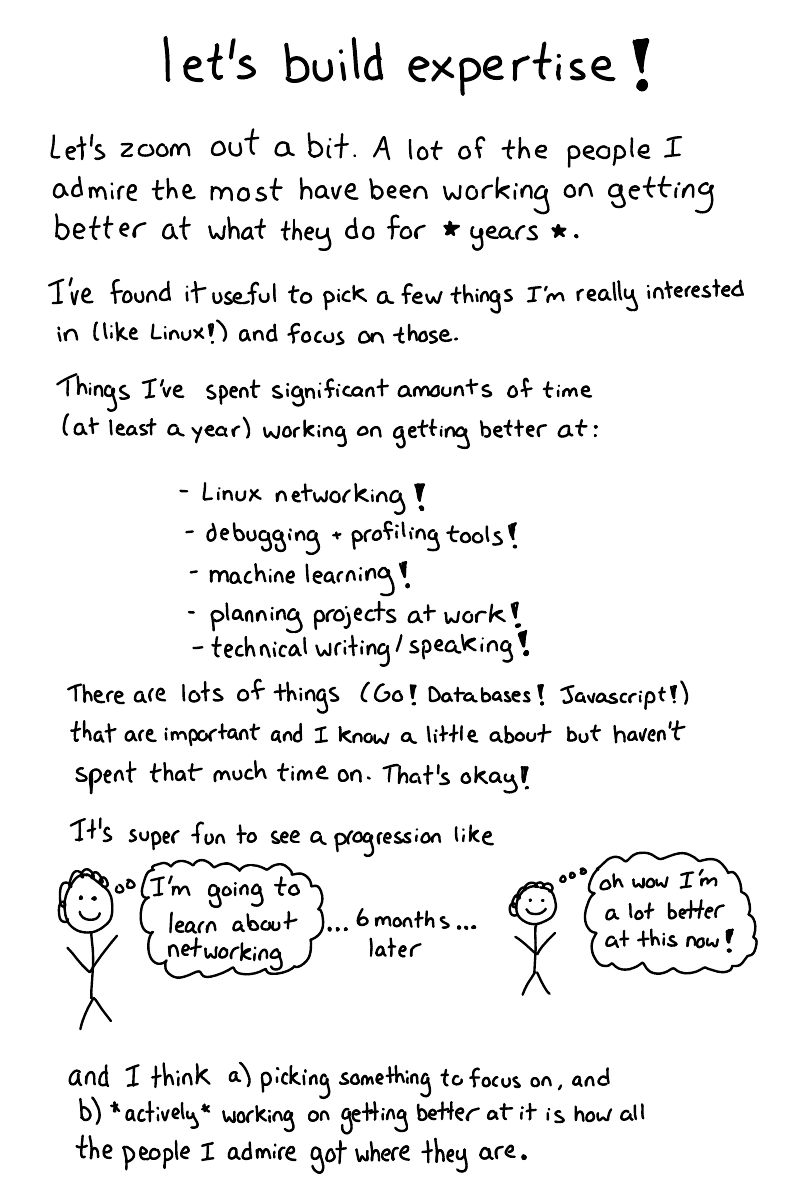 let's build expertise!
Let's zoom out a bit. A lot of the people I
admire the most have been working on getting
better at what they do for ★ years ★.
I've found it useful to pick a few things I'm really interested
in (like Linux!) and focus on those.
Things I've spent significant amounts of time
(at least a year) working on getting better at:
- Linux networking!
- debugging + profiling tools!
- machine learning!
- planning projects at work!
- technical writing/speaking!
There are lots of things (Go! Databases! Javascript!)
that are important and I know a little about but haven't
spent that much time on. That's okay!
It's super fun to see a progression like
I'm going to
learn about
networking
... 6 months ...
later
oh wow I'm
a lot better
at this now!
and I think a) picking something to focus on, and
b) *actively* working on getting better at it is how all
the people I admire got where they are.